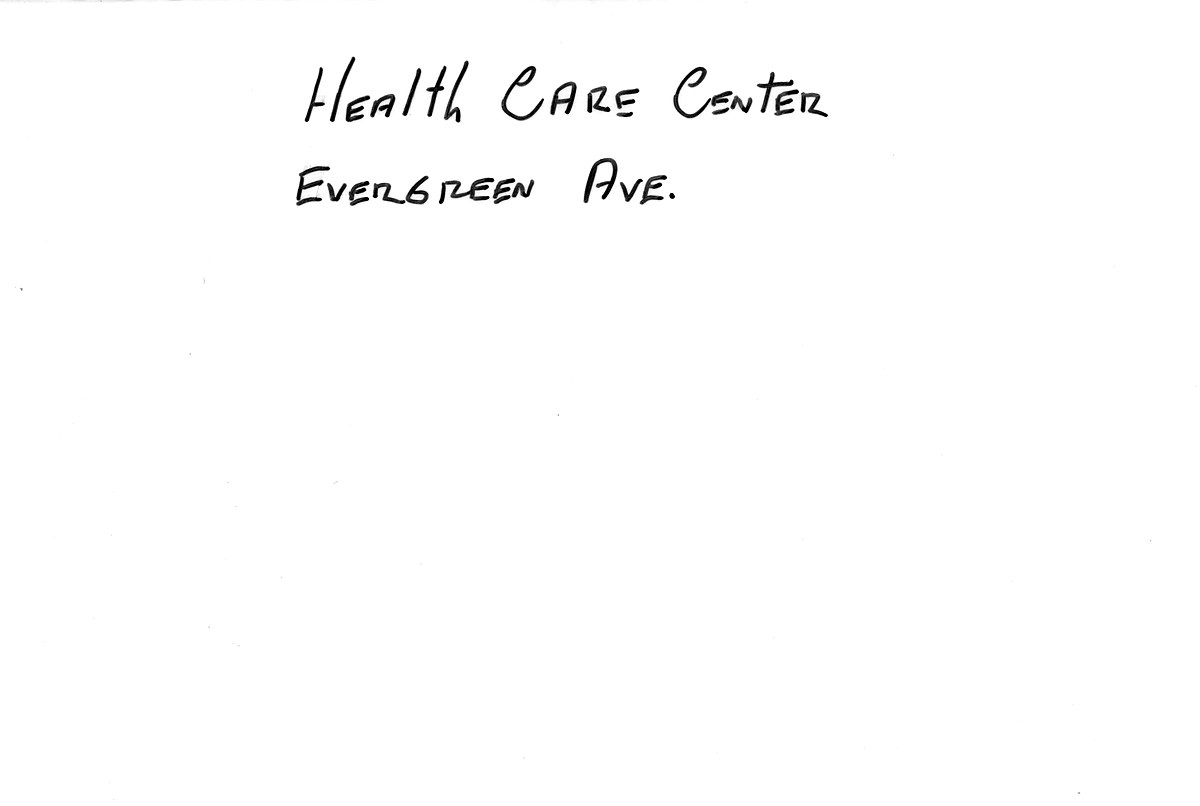 Health Care Center
Evergreen Ave.